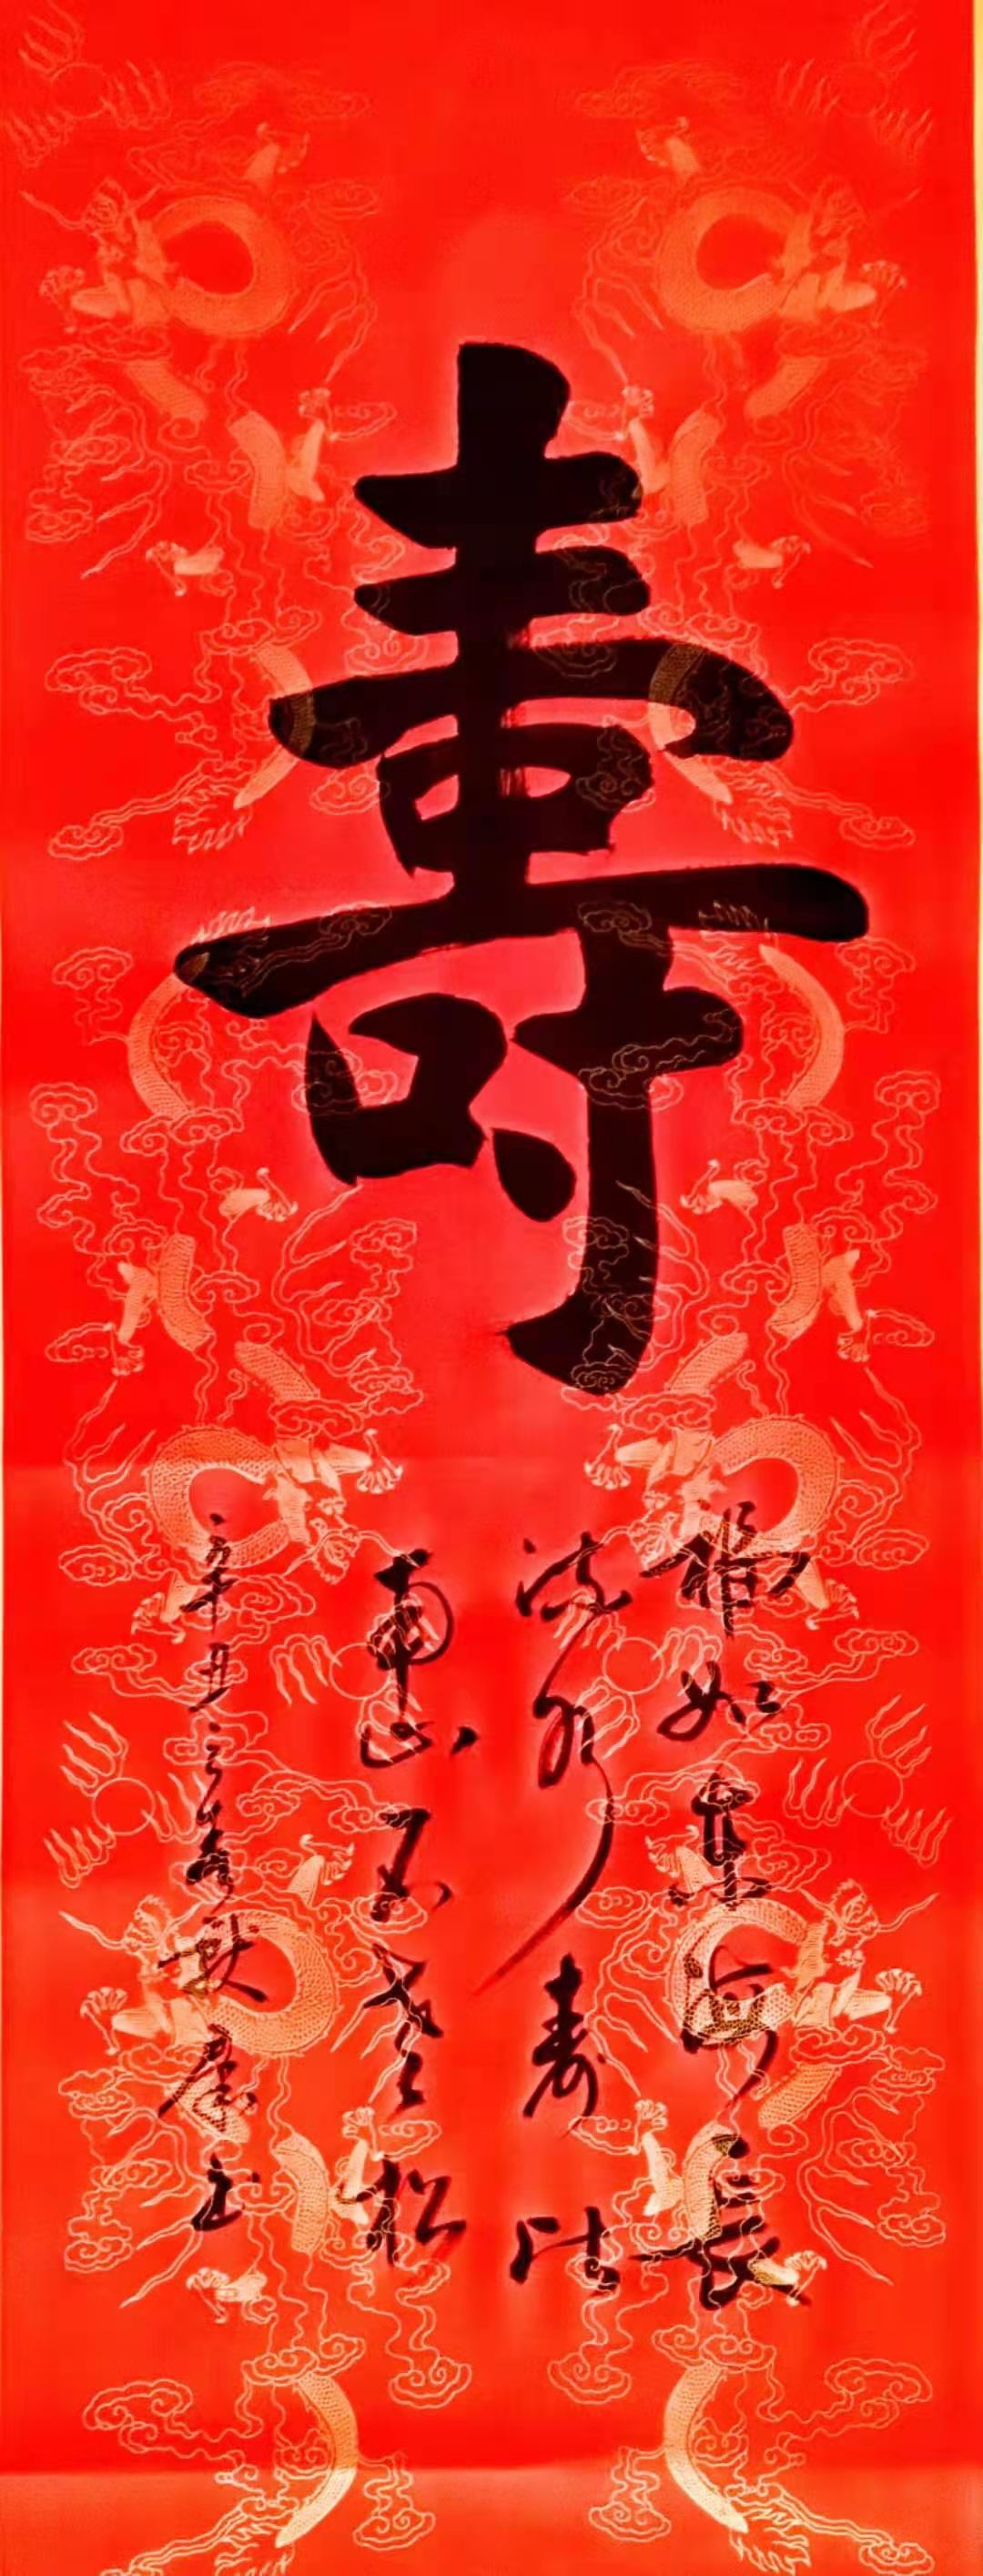 壽
福如東海長
流水壽比
南山不老松
辛丑之春